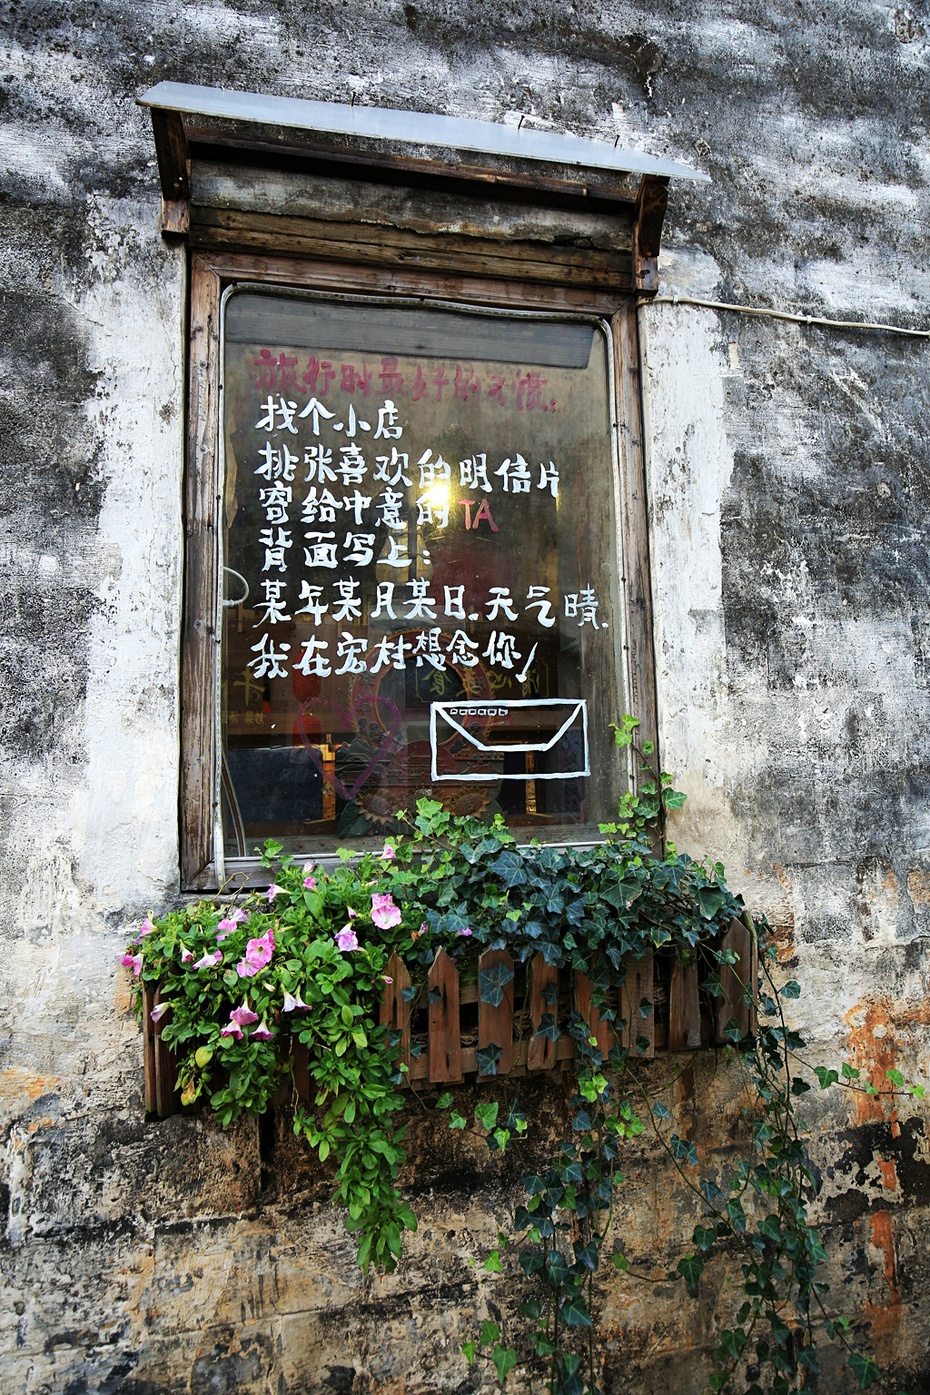 旅行时最好的习惯。
找个小店
挑张喜欢的明信片
寄给中意的TA
背面写上:
某年某月某日.天气晴.
我在宏村想念你!